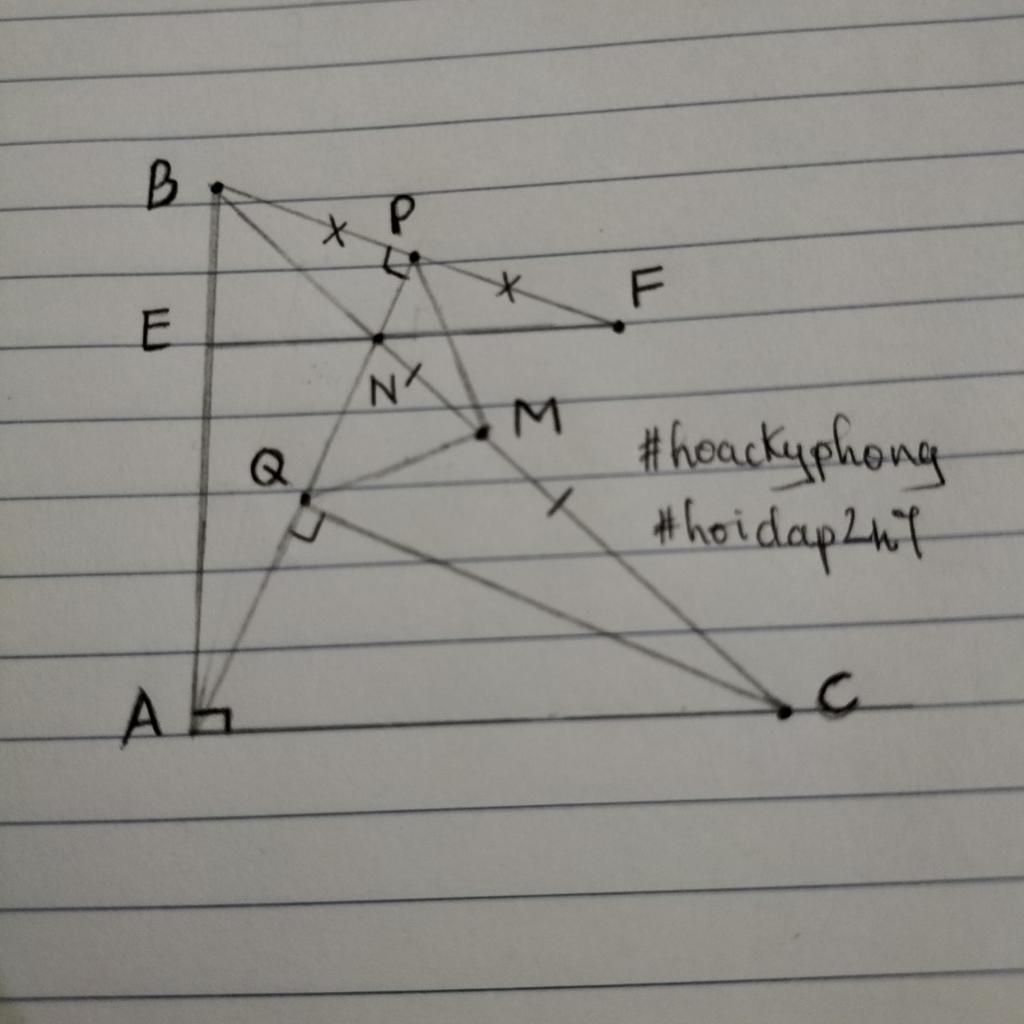 B
P
F
E
N
M
Q
#hoackyphong
#hoidap247
A
C